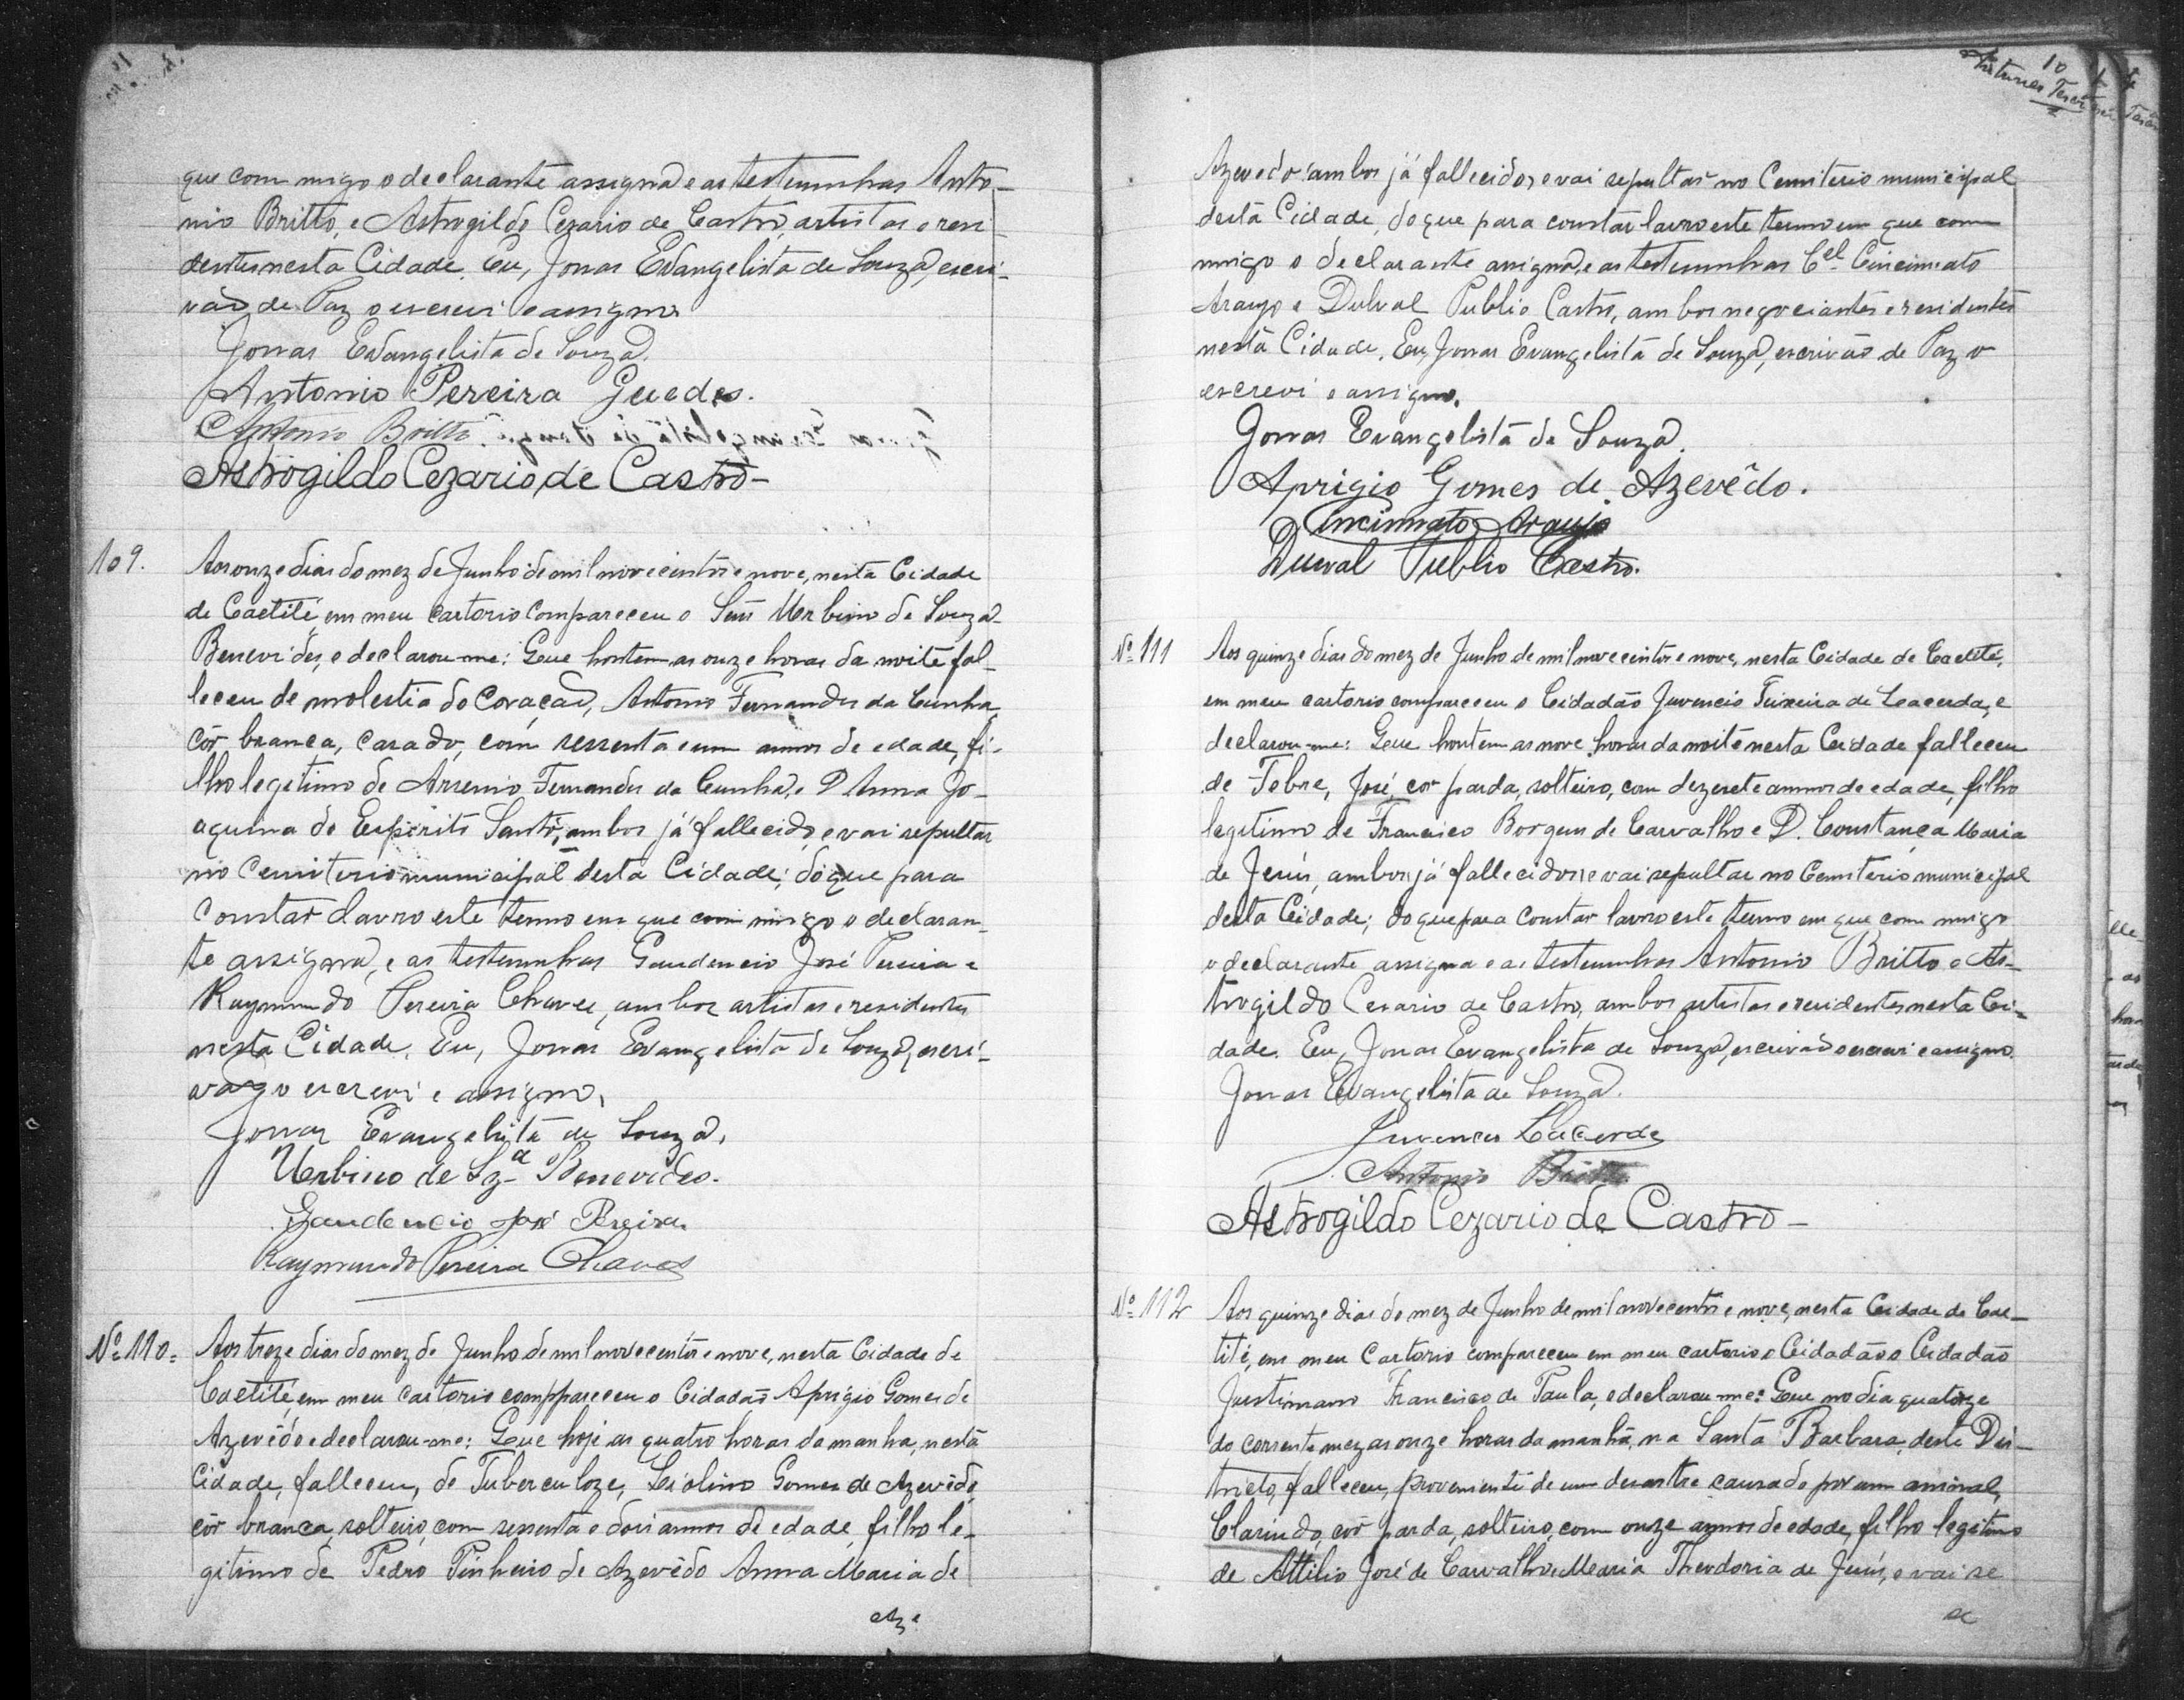 que com migo o declarante assigna e as testemunhas Anto-
nio Britto, e Astrogildo Cezario de Castro, artistas e resi-
dentes nesta Cidade. Eu, Jonas Evangelista de Souza, escri-
vão de Paz o escrevi e assigno
Jonas Evangelista de Souza.
Antonio Pereira Guedes.
Antonio Britto
Astrogildo Cezario de Castro-
109.
Aos onze dias do mez de Junho de mil novecentos e nove, nesta Cidade
de Caetité, em meu cartorio compareceu o Senr Urbino de Souza
Benevides, e declarou-me: Que hontem as onze horas da noite fal-
leceu de molestia do Coração, Antonio Fernandes da Cunha,
côr branca, casado, com sessenta e um annos de edade, fi-
lho legitimo de Arsenio Fernandes da Cunha, e D Anna Jo-
aquina do Espirito Santo, ambos já fallecidos, e vai sepultar
no Cemiterio municipal desta Cidade; do que para
Constar lavro este termo em que com migo o declaran-
te assigna, e as testemunhas Gaudencio José Pereira e
Raymundo Pereira Chaves, ambos artistas e residentes
nesta Cidade. Eu, Jonas Evangelista de Souza, escri-
vão o escrevi e assigno.
Jonas Evangelista de Souza.
Urbino de Sza Benevides.
Gaudencio José Pereira.
Raymundo Pereira Chaves
Nº 110=
Aos treze dias do mez de Junho de mil novecentos e nove, nesta Cidade de
Caetité, em meu cartorio comppareceu o Cidadão Aprigio Gomes de
Azevêdo e declarou-me: Que hoje as quatro horas da manha, nesta
Cidade, falleceu, de Tuberculoze, Liolino Gomes de Azevêdo,
côr branca, solteiro, com sessenta e dois annos de edade, filho le-
gitimo de Pedro Pinheiro de Azevêdo Anna Maria de
Az.
10
Antunes
Azevedo ambos já fallecidos, e vai sepultar no Cemiterio municipal
desta Cidade, do que para constar lavro este termo em que com
migo o declarante assigna, e as testemunhas Cel Cincinnato
Araujo e Dulval Publio Castro, ambos negociantes e residentes
nesta Cidade. Eu, Jonas Evangelista de Souza, escrivão de Paz o
escrevi e assigno.
Jonas Evangelista de Souza.
Aprigio Gomes de Azevêdo.
Cincinnato Araujo
Durval Publio Castro.
Nº 111
Aos quinze dias do mez de Junho de mil novecentos e nove, nesta Cidade de Caetité,
em meu cartorio compareceu o Cidadão Juvencio Teixeira de Lacerda, e
declarou-me: Que hontem as nove horas da noite nesta Cidade falleceu
de Febre, José, cor parda, solteiro, com dezesete annos de edade, filho
legitimo de Francisco Borges de Carvalho e D. Constança Maria
de Jesús, ambos já fallecidos, e vai sepultar no Cemiterio municipal
desta Cidade; do que para constar lavro este termo em que com migo
o declarante assigna e as testemunhas Antonio Britto e As-
trogildo Cesario de Castro, ambos artistas e residentes nesta Ci-
dade. Eu, Jonas Evangelista de Souza, escrivão o escrevi e assigno.
Jonas Evangelista de Souza.
Juvencio Lacerda
Antonio Britto
Astrogildo Cezario de Castro-
Nº 112
Aos quinze dias do mez de Junho de mil novecentos e nove, nesta Cidade de Cae-
tité, em meu Cartorio compareceu em meu cartorio o Cidadão o Cidadão
Justiniano Francisco de Paula, e declarou-me: Que no dia quatorze
do corrente mez as onze horas da manhã, na Santa Barbara, deste Dis-
tricto, falleceu, proveniente de um desastre causado por um animal,
Clarindo, côr parda, solteiro, com onze annos de edade, filho legitimo
de Attilio José de Carvalho e Maria Theodoria de Jesús, e vai se